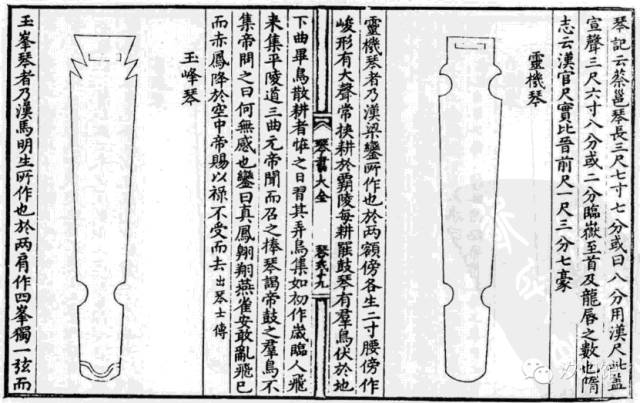 琴記云蔡邕琴長三尺七寸七分或曰八分用漢尺此蓋
宣聲三尺六寸八分或二分臨嶽至首及龍唇之數也隋
志云漢官尺實比晉前尺一尺三分七豪
靈機琴
靈機琴者乃漢梁鑾所作也於兩額傍各生二寸腰傍作
峻形有大聲常挾耕於霸陵每耕罷鼓琴有羣鳥伏於地
琴書大全
琴式十九
下曲畢鳥散耕者惟之日習其弄鳥集如初作歲臨人飛
來集平陵道三曲元帝聞而召之捧琴謁帝鼓之羣鳥不
集帝問之曰何無感也鑾曰真鳳翱翔燕雀安敢亂飛已
而赤鳳降於空中帝賜以祿不受而去出琴士傳
玉峰琴
玉峯琴者乃漢馬明生所作也於兩肩作四峯獨一弦而